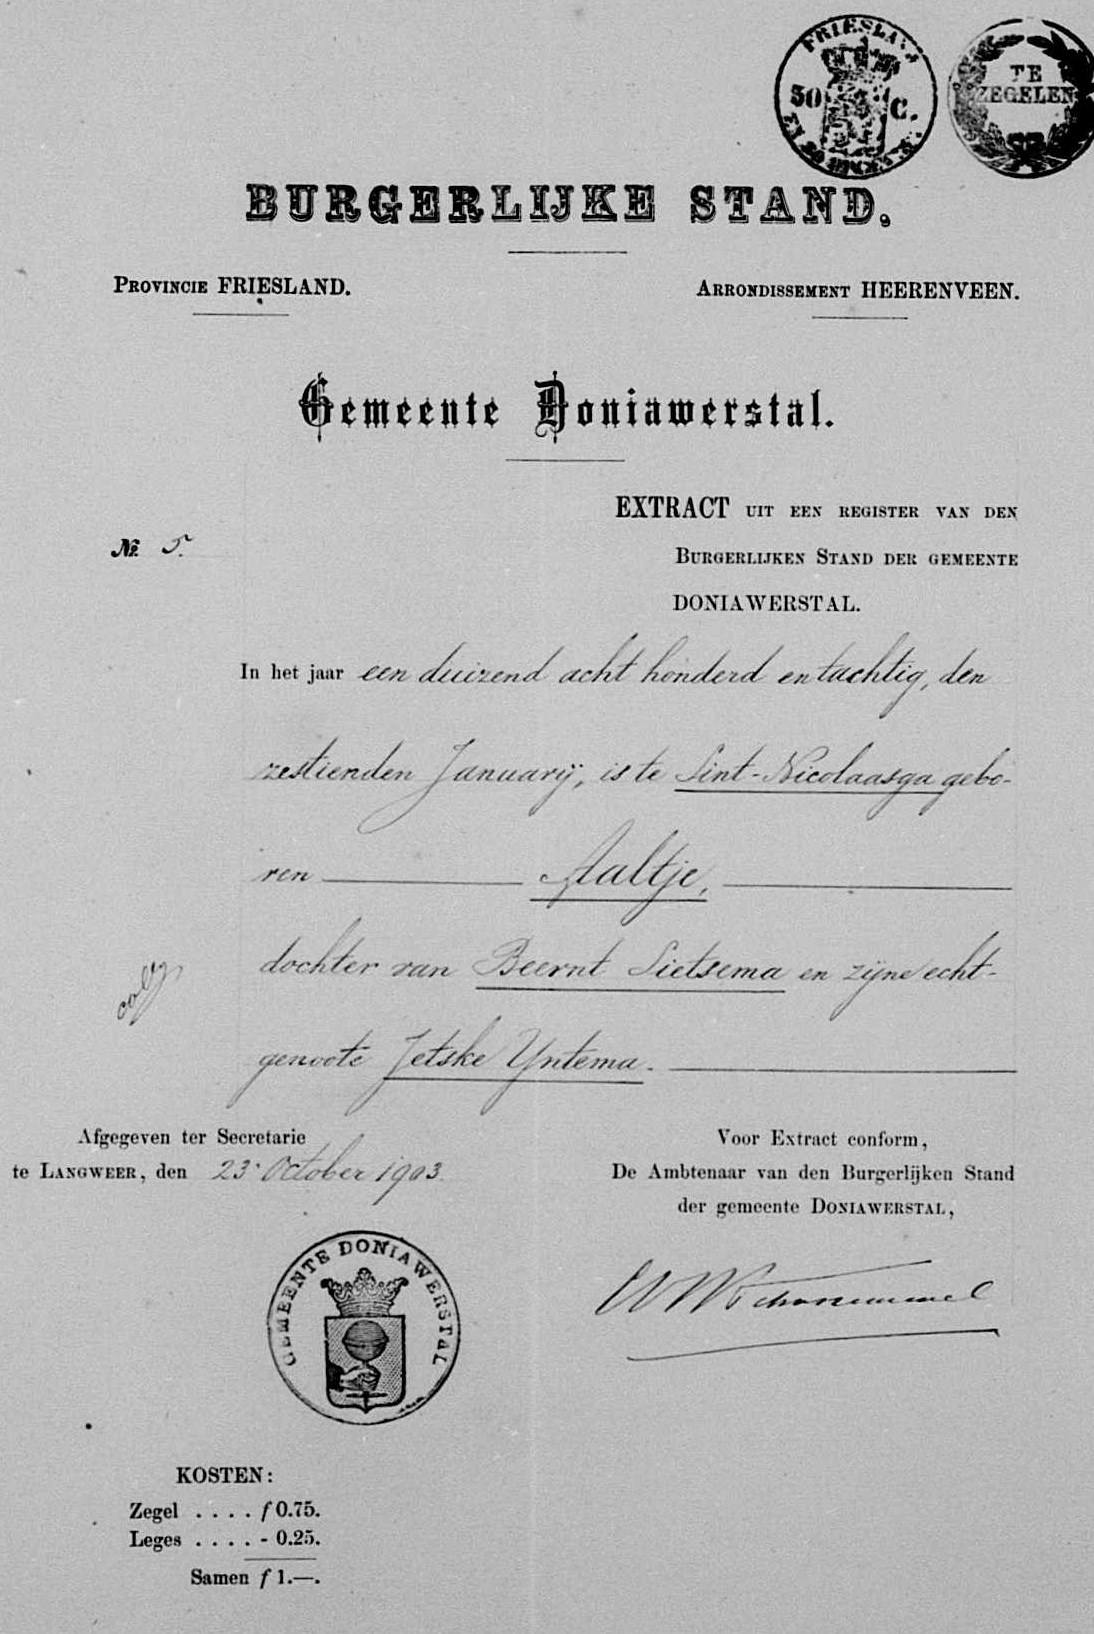 FRIESLAND
50 C.
TE
ZEGELEN
BURGERLIJKE STAND.
PROVINCIE FRIESLAND.
ARRONDISSEMENT HEERENVEEN.
Gemeente Doniawerstal.
EXTRACT UIT EEN REGISTER VAN DEN
№ 5.
BURGERLIJKEN STAND DER GEMEENTE
DONIAWERSTAL.
In het jaar een duizend acht honderd en tachtig, den
zestienden Januarij, is te Sint-Nicolaasga gebo-
ren Aaltje,
dochter van Beernt Sietsema en zijne echt-
genoote Jetske Yntema.
Afgegeven ter Secretarie
te LANGWEER, den 23 October 1903
Voor Extract conform,
De Ambtenaar van den Burgerlijken Stand
der gemeente DONIAWERSTAL,
GEMEENTE DONIAWERSTAL
KOSTEN:
Zegel . . . . f 0.75.
Leges . . . . - 0.25.
Samen f 1.—.